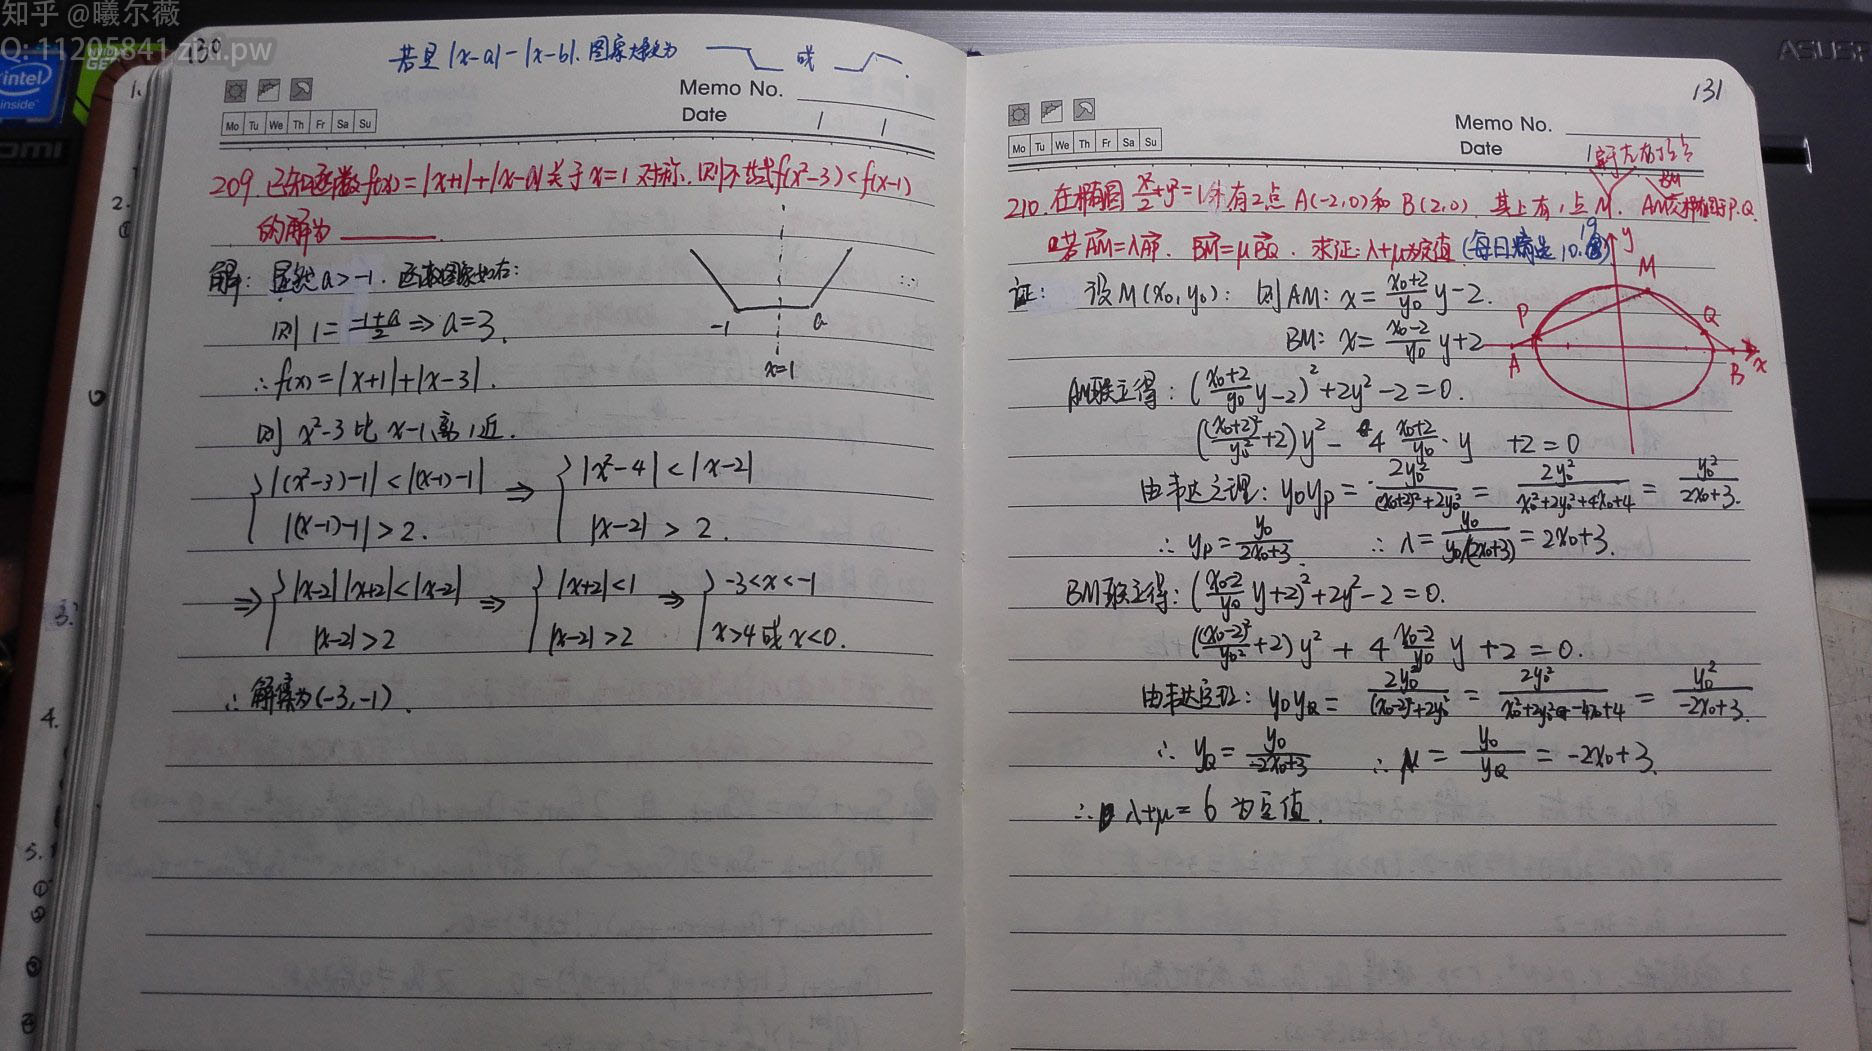 知乎 @曦尔薇
Q: 11205841 zixi.pw
intel
inside
ASUS
130
若是 |x-a|-|x-b|. 图象大致为 或
Memo No.
Mo Tu We Th Fr Sa Su
Date / /
209. 已知函数 f(x)=|x+1|+|x-a| 关于 x=1 对称. 则不等式 f(x²-3)<f(x-1)
的解为 ______.
解: 显然 a>-1. 函数图象如右:
则 1=(-1+a)/2 ⇒ a=3.
-1 a
x=1
∴ f(x)=|x+1|+|x-3|.
则 x²-3 比 x-1 离 1 近.
{ |(x²-3)-1|<|(x-1)-1| ⇒ { |x²-4|<|x-2|
|(x-1)-1|>2. |x-2|>2.
⇒ { |x-2||x+2|<|x-2| ⇒ { |x+2|<1 ⇒ { -3<x<-1
|x-2|>2 |x-2|>2 x>4 或 x<0.
∴ 解集为 (-3,-1).
131
Memo No.
Mo Tu We Th Fr Sa Su
Date
210. 在椭圆 x²/2+y²=1 外有2点 A(-2,0) 和 B(2,0). 其上有1点 M. AM BM 交椭圆于 P.Q.
若 AM=λAP. BM=μBQ. 求证: λ+μ为定值 (每日精选 10.19)
证: 设 M(x₀,y₀): 则 AM: x=(x₀+2)/y₀ y-2.
BM: x=(x₀-2)/y₀ y+2
y M P Q A B x
AM联立得: ((x₀+2)/y₀ y-2)²+2y²-2=0.
((x₀+2)²/y₀²+2)y²-4 (x₀+2)/y₀·y +2=0
由韦达定理: y₀yP=2y₀²/((x₀+2)²+2y₀²)=2y₀²/(x₀²+2y₀²+4x₀+4)=y₀²/(2x₀+3).
∴ yP=y₀/(2x₀+3) ∴ λ=y₀/(y₀/(2x₀+3))=2x₀+3.
BM联立得: ((x₀-2)/y₀ y+2)²+2y²-2=0.
((x₀-2)²/y₀²+2)y²+4 (x₀-2)/y₀ y+2=0.
由韦达定理: y₀yQ=2y₀²/((x₀-2)²+2y₀²)=2y₀²/(x₀²+2y₀²-4x₀+4)=y₀²/(-2x₀+3).
∴ yQ=y₀/(-2x₀+3) ∴ μ=y₀/yQ=-2x₀+3.
∴ λ+μ=6 为定值.